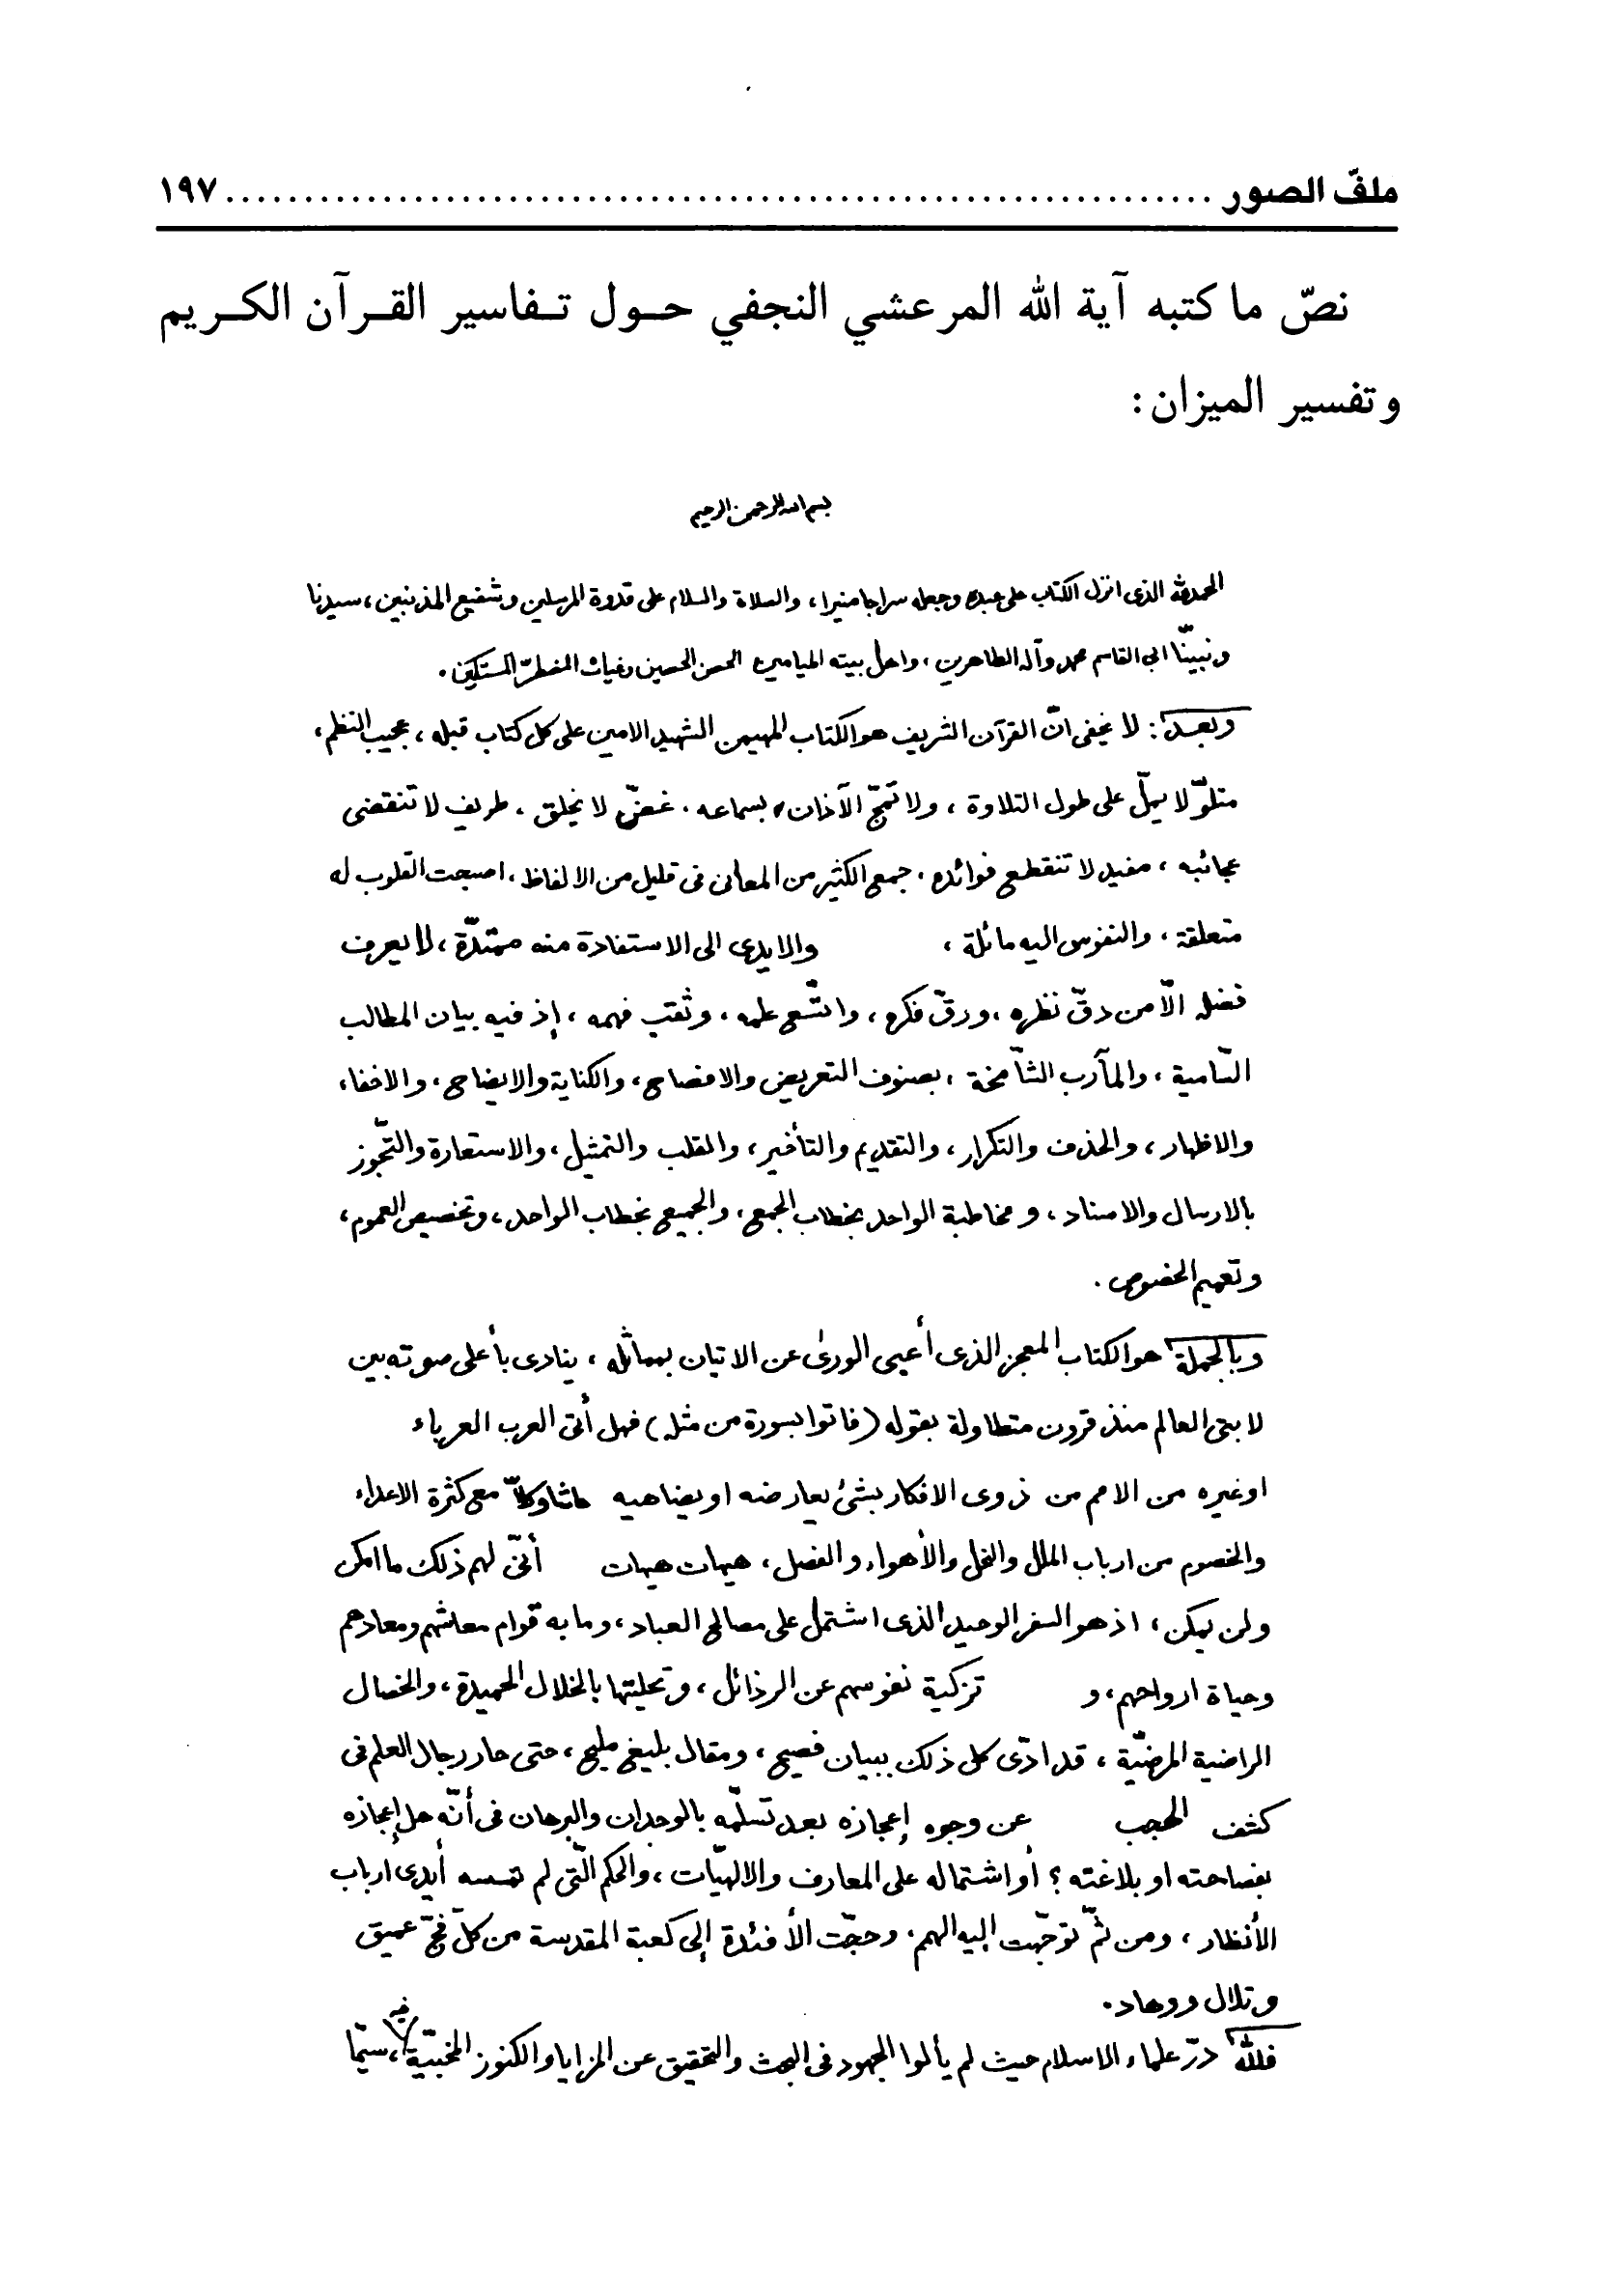 ملفّ الصور ........................................................ ١٩٧
نصّ ما كتبه آية الله المرعشي النجفي حول تفاسير القرآن الكريم
وتفسير الميزان :
بسم الله الرحمن الرحيم
الحمد لله الذى انزل الكتاب على عبده وجعله سراجا منيرا ، والصلاة والسلام على قدوة المرسلين وشفيع المذنبين ، سيدنا
ونبيّنا ابي القاسم محمد وآله الطاهرين ، واهل بيته الميامين الحصن الحصين وغياث المضطرّ المستكين .
وبعد : لا يخفى انّ القرآن الشريف هو الكتاب المهيمن الشهيد الامين على كل كتاب قبله ، عجيب النظم ،
متلوّ لا يملّ على طول التلاوة ، ولا تمجّ الآذان بسماعه . غضّ لا يخلق . طريف لا تنقضى
عجائبه ، مفيد لا تنقطع فوائده . جمع الكثير من المعانى فى قليل من الالفاظ . اصبحت القلوب له
متعلقة ، والنفوس اليه مائلة ، والايدى الى الاستفادة منه ممتدّة ، لا يعرف
فضله الاّ من دقّ نظره ، ورقّ فكره ، واتّسع علمه ، وثقب فهمه ، إذ فيه بيان المطالب
السّامية ، والمآرب الشّامخة ، بصنوف التعريض والافصاح ، والكناية والايضاح ، والاخفاء
والاظهار ، والحذف والتكرار ، والتقديم والتأخير ، والقلب والتمثيل ، والاستعارة والتّجوز
بالارسال والاسناد ، ومخاطبة الواحد بخطاب الجمع ، والجميع بخطاب الواحد ، وتخصيص العموم ،
وتعميم الخصوص .
وبالجملة هو الكتاب المعجز الذى أعيى الورىٰ عن الاتيان بمماثله ، ينادى بأعلى صوته بين
لابتى العالم منذ قرون متطاولة بقوله (فاتوا بسورة من مثله) فهل أتى العرب العرباء
اوغيره من الامم من ذوى الافكار بشئ يعارضه او يضاهيه حاشا وكلاّ مع كثرة الاعداء
والخصوم من ارباب الملل والنحل والأهواء والفصل ، هيهات هيهات أنّى لهم ذلك ما امكن
ولن يمكن ، اذ هو السفر الوحيد الذى اشتمل على مصالح العباد ، وما به قوام معاشهم ومعادهم
وحياة ارواحهم ، و تزكية نفوسهم عن الرذائل ، وتحليتها بالخلال الحميدة ، والخصال
الراضية المرضيّة ، قد ادّى كل ذلك ببيان فصيح ، ومقال بليغ مليح ، حتى حار رجال العلم فى
كشف الحجب عن وجوه إعجازه بعد تسلّمه بالوجدان والبرهان فى أنّه هل إعجازه
بفصاحته او بلاغته ؟ أو اشتماله على المعارف والالهيّات ، والحكم الّتى لم تمسسه أيدى أرباب
الأنظار ، ومن ثمّ توجّهت إليه الهمم . وحجّت الأفئدة إلى كعبة المقدسة من كلّ فجّ عميق
وتلال ووهاد .
فللّه درّ علماء الاسلام حيث لم يألوا الجهود فى البحث والتحقيق عن المزايا والكنوز المخبيّة فيه ، سيّما